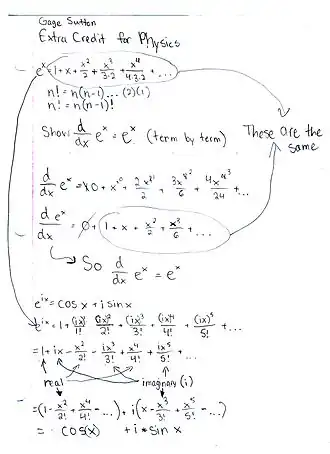 Gage Sutton
Extra Credit for Physics
e^x = 1 + x + x²/2 + x³/3·2 + x⁴/4·3·2 + ...
n! = n(n-1)... (2)(1)
n! = n(n-1)!
Show d/dx e^x = e^x (term by term)
These are the
same
d/dx e^x = 0 + x⁰ + 2x/2 + 3x²/6 + 4x³/24 + ...
d e^x/dx = 0 + 1 + x + x²/2 + x³/6 + ...
So d/dx e^x = e^x
e^ix = cos x + i sin x
e^ix = 1 + (ix)/1! + (ix)²/2! + (ix)³/3! + (ix)⁴/4! + (ix)⁵/5! + ...
= 1 + ix - x²/2! - ix³/3! + x⁴/4! + ix⁵/5! + ...
real imaginary (i)
= (1 - x²/2! + x⁴/4! - ...) + i(x - x³/3! + x⁵/5! - ...)
= cos(x) + i * sin x